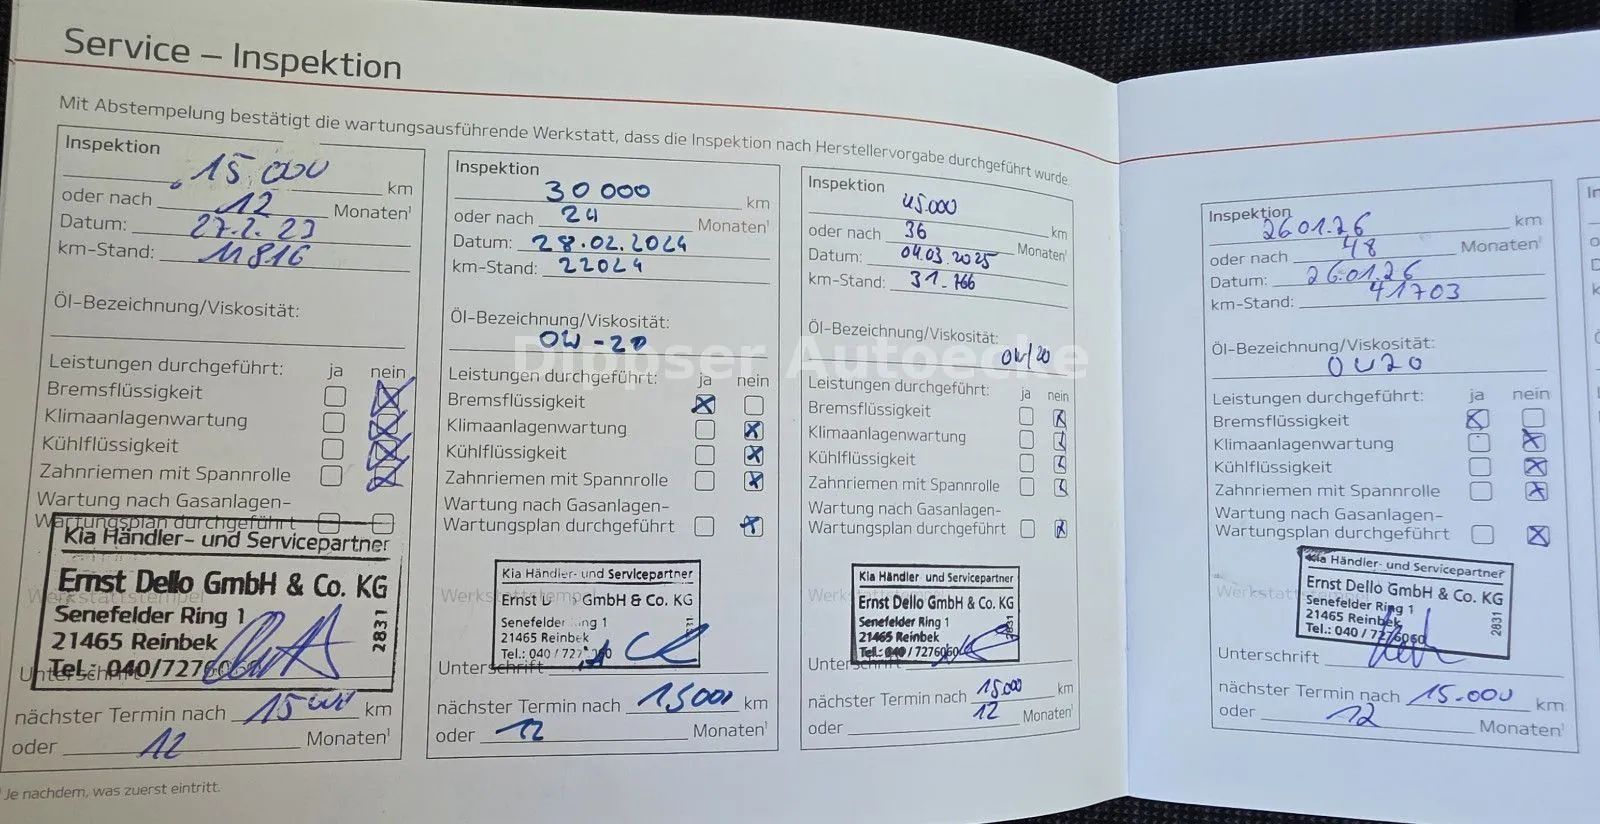 Service – Inspektion
Mit Abstempelung bestätigt die wartungsausführende Werkstatt, dass die Inspektion nach Herstellervorgabe durchgeführt wurde.
Inspektion
15.000 km
oder nach 12 Monaten¹
Datum: 27.2.23
km-Stand: 11816
Öl-Bezeichnung/Viskosität:
Leistungen durchgeführt: ja nein
Bremsflüssigkeit
Klimaanlagenwartung
Kühlflüssigkeit
Zahnriemen mit Spannrolle
Wartung nach Gasanlagen-
Wartungsplan durchgeführt
Kia Händler- und Servicepartner
Ernst Dello GmbH & Co. KG
Senefelder Ring 1
21465 Reinbek
Tel.: 040/7276060
2831
Werkstattstempel
Unterschrift
nächster Termin nach 15000 km
oder 12 Monaten¹
¹ Je nachdem, was zuerst eintritt.
Inspektion
30 000 km
oder nach 24 Monaten¹
Datum: 28.02.2024
km-Stand: 22024
Öl-Bezeichnung/Viskosität:
0W-20
Leistungen durchgeführt: ja nein
Bremsflüssigkeit
Klimaanlagenwartung
Kühlflüssigkeit
Zahnriemen mit Spannrolle
Wartung nach Gasanlagen-
Wartungsplan durchgeführt
Kia Händler- und Servicepartner
Ernst GmbH & Co. KG
Senefelder Ring 1
21465 Reinbek
Tel.: 040 /
Unterschrift
nächster Termin nach 15000 km
oder 12 Monaten¹
Inspektion
45.000 km
oder nach 36 Monaten¹
Datum: 04.03.2025
km-Stand: 31.766
Öl-Bezeichnung/Viskosität:
0W/20
Leistungen durchgeführt: ja nein
Bremsflüssigkeit
Klimaanlagenwartung
Kühlflüssigkeit
Zahnriemen mit Spannrolle
Wartung nach Gasanlagen-
Wartungsplan durchgeführt
Kia Händler- und Servicepartner
Ernst Dello GmbH & Co. KG
Senefelder Ring 1
21465 Reinbek
Tel.: 040 / 7276060
2831
Unterschrift
nächster Termin nach 15.000 km
oder 12 Monaten¹
Inspektion
26.01.26 km
oder nach 48 Monaten¹
Datum: 26.01.26
km-Stand: 41703
Öl-Bezeichnung/Viskosität:
0W20
Leistungen durchgeführt: ja nein
Bremsflüssigkeit
Klimaanlagenwartung
Kühlflüssigkeit
Zahnriemen mit Spannrolle
Wartung nach Gasanlagen-
Wartungsplan durchgeführt
Kia Händler- und Servicepartner
Ernst Dello GmbH & Co. KG
Senefelder Ring 1
21465 Reinbek
Tel.: 040 / 7276060
2831
Unterschrift
nächster Termin nach 15.000 km
oder 12 Monaten¹
Dippser Autoecke